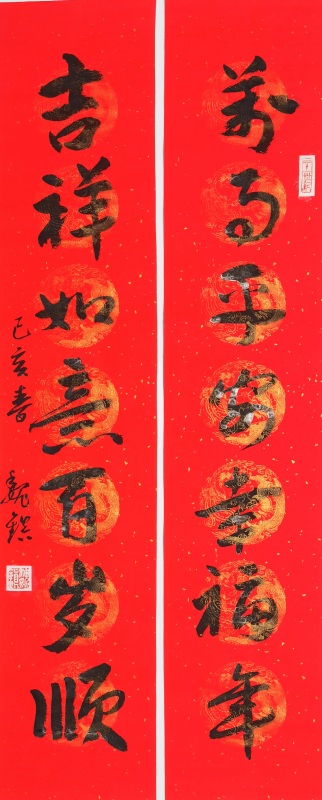 萬事平安幸福年
吉祥如意百岁顺
己亥春 魏